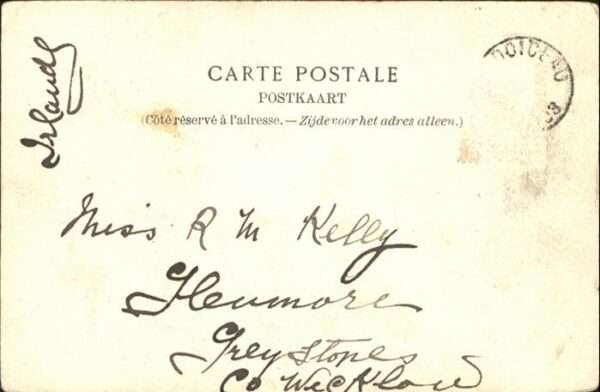 Irlande
DOICEAU
3
CARTE POSTALE
POSTKAART
(Côté réservé à l'adresse. — Zijde voor het adres alleen.)
Miss R M Kelly
Glenmore
Greystones
Co Wicklow